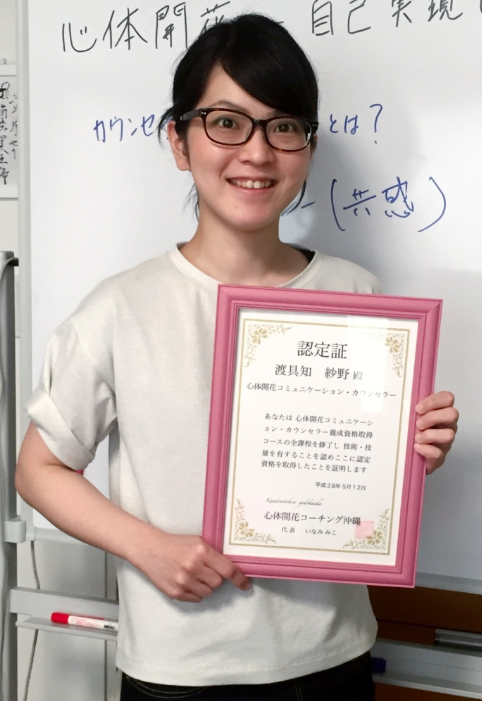 心体開花 自己実現
カウンセ とは?
(共感)
認定証
渡具知 紗野 殿
心体開花コミュニケーション・カウンセラー
あなたは 心体開花コミュニケーシ
ョン・カウンセラー養成資格取得
コースの全課程を修了し 技術・技
量を有することを認めここに認定
資格を取得したことを証明します
平成28年5月12日
心体開花コーチング沖縄
代表 いなみ みこ